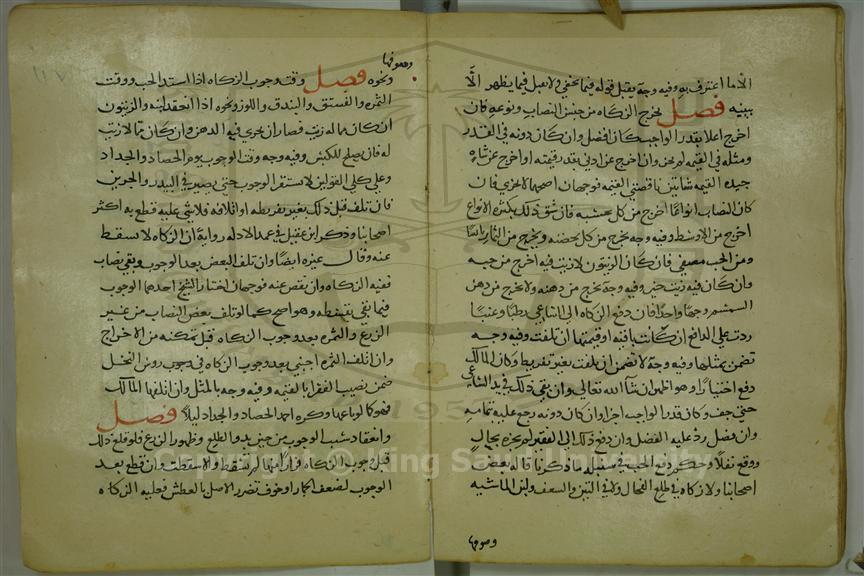 الا ما اعترف به وفيه وجه يقبل قوله فيما يخفي ولا يقبل فيما يظهر الا
ببينه فصل يخرج الزكاه من جنس النصاب ونوعه فان
اخرج اعلا بقدر الواجب كان افضل وان كان دونه في القدر
ومثله في القيمه لم يجز وان اخرج عن اردي بقدر قيمته او اخرج عن شاه
جيده القيمه شاتين ناقصتي القيمه فوجهان اصحهما لا يجزي فان
كان النصاب انواعًا اخرج من كل بحسبه فان شق ذلك بكثره الانواع
اخرج من الاوسط وفيه وجه يخرج من كل بحصته ويخرج من الثمار يابسا
ومن الحب مصفي فان كان الزيتون لا زيت فيه اخرج من حبه
وان كان فيه زيت خير وفيه وجه يخرج من دهنه ولا يخرج من دهن
السمسم وجهًا واحدًا فان دفع الزكاه الي الساعي رطبًا وعنبًا
ردت علي الدافع ان كانت باقيه او قيمتها ان تلفت وفيه وجه
تضمن بمثلها وفيه وجه لا تضمن ان تلفت بغير تفريط وكان المالك
دفع اختيارًا وهو اظهر ان شا الله تعالي وان بقي ذلك في يد الساعي
حتي جف وكان قدر الواجب اجزا وان كان دونه رجع عليه بتمامه
وان فضل رد عليه الفضل وان دفع ذلك الي الفقير لم يجزه بحال
ووقع نفلًا وحكم دفع الحب في سنبله ما ذكرنا قاله بعض
اصحابنا ولا زكاه في طلع الفحال ولا في التبن والسعف ولبن الماشيه
وصوفها
وصوفها
ونحوه فصل وقت وجوب الزكاه اذا اشتد الحب ووقت
الثمره والفستق والبندق واللوز ونحوه اذا انعقد لبه والزيتون
ان كان مما له زيت فصار ان يجري فيه الدهن وان كان مما لا زيت
له فان يصلح للكبس وفيه وجه وقت الوجوب يوم الحصاد والجداد
وعلي كلي القولين لا تستقر الوجوب حتي يصير في البيدر والجرين
فان تلف قبل ذلك بغير تفريطه او اتلافه فلا شي عليه قطع به اكثر
اصحابنا وذكر ابن عقيل في عمد الادله رواية ان الزكاه لا تسقط
عنه وقال غيره ايضًا وان تلف البعض بعد الوجوب وبقي نصاب
ففيه الزكاه وان نقص عنه فوجهان اختار الشيخ احدهما الوجوب
فيما بقي بقسطه وهو اصح كما لو تلف بعض النصاب من غير
الزرع والثمره بعد وجوب الزكاه قبل تمكنه من الاخراج
وان اتلف الثمره اجنبي بعد وجوب الزكاه في روس النخل
ضمن نصيب الفقرا بالقيمه وفيه وجه بالمثل وان اتلفها المالك
فهو كما لو باعها وكره احمد الحصاد والجداد ليلًا فصل
وانعقاد سبب الوجوب من حين بدو الطلع وظهور الزرع فلو قطع ذلك
قبل وجوب الزكاه فرارًا منها لم تسقط والا سقطت وان قطع بعد
الوجوب لضعف الجمار او خوف تضرر الاصل بالعطش فعليه الزكاه
Copyright © King Saud University